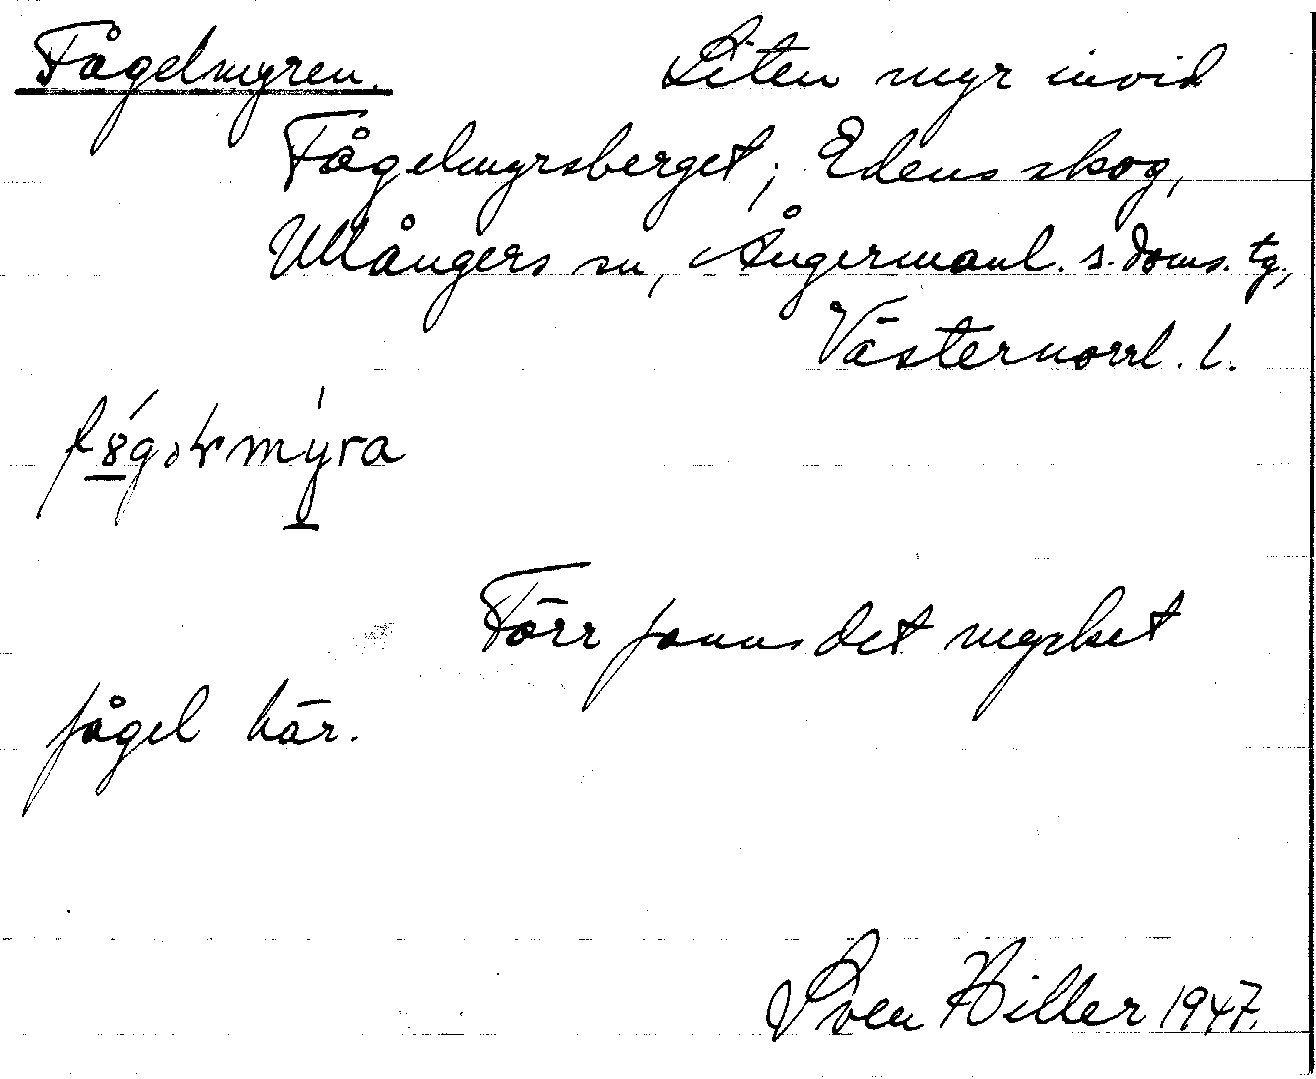 Fågelmyren. Liten myr invid
Fågelmyrsberget; Edens skog,
Ullångers sn, Ångermanl. s. doms. tg.,
Västernorrl. l.
Förr fanns det mycket
fågel här.
Sven Hiller 1947.